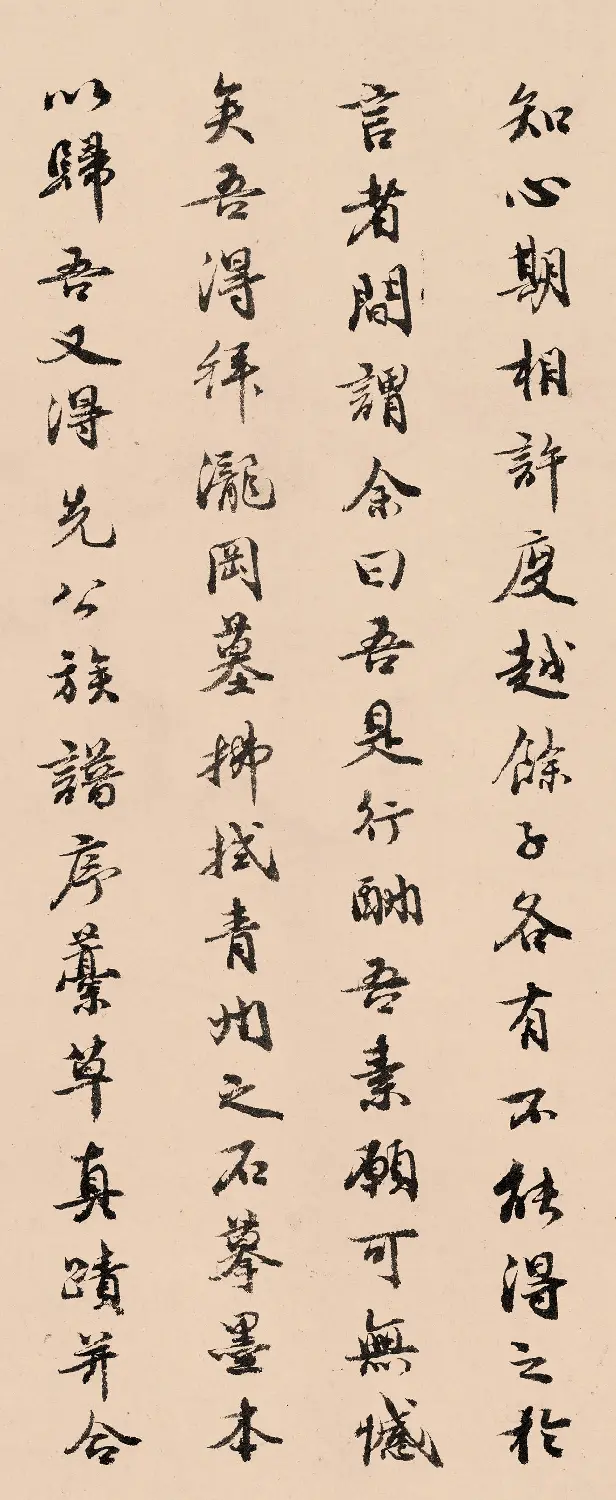 知心期相許度越餘子各有不能得之於
言者間謂余曰吾是行酬吾素願可無憾
矣吾得拜瀧岡墓拂拭青州之石摹墨本
以歸吾又得先公族譜序藁草真蹟并合